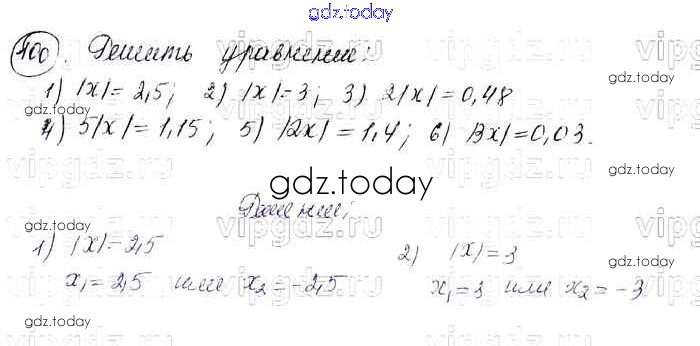 gdz.today
400. Решить уравнение:
1) |x|=2,5; 2) |x|=3; 3) 2|x|=0,48
4) 5|x|=1,15; 5) |2x|=1,4; 6) |3x|=0,03.
gdz.today
Решение:
1) |x|=2,5
2) |x|=3
x₁=2,5 или x₂=-2,5
x₁=3 или x₂=-3
gdz.today
gdz.today
gdz.today
gdz.today
vipgdz.ru
vipgdz.ru
vipgdz.ru
vipgdz.ru